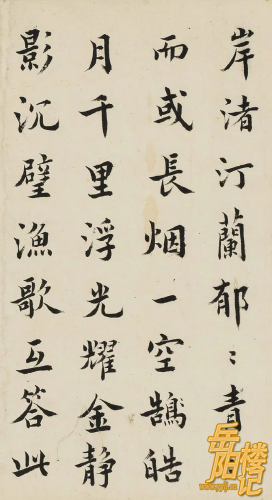 岸渚汀蘭郁〻青
而或長烟一空鵠皓
月千里浮光耀金静
影沉璧漁歌互答此
岳阳楼记